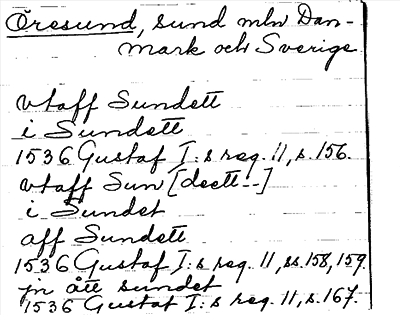 Öresund, sund mln Dan-
mark och Sverige
vtaff Sundett
i Sundett
1536 Gustaf I:s reg. 11, s. 156.
vtaff Sun [dett--]
i Sundet
aff Sundett
1536 Gustaf I:s reg. 11, ss. 158, 159.
jn ått sundet
1536 Gustaf I:s reg. 11, s. 167.